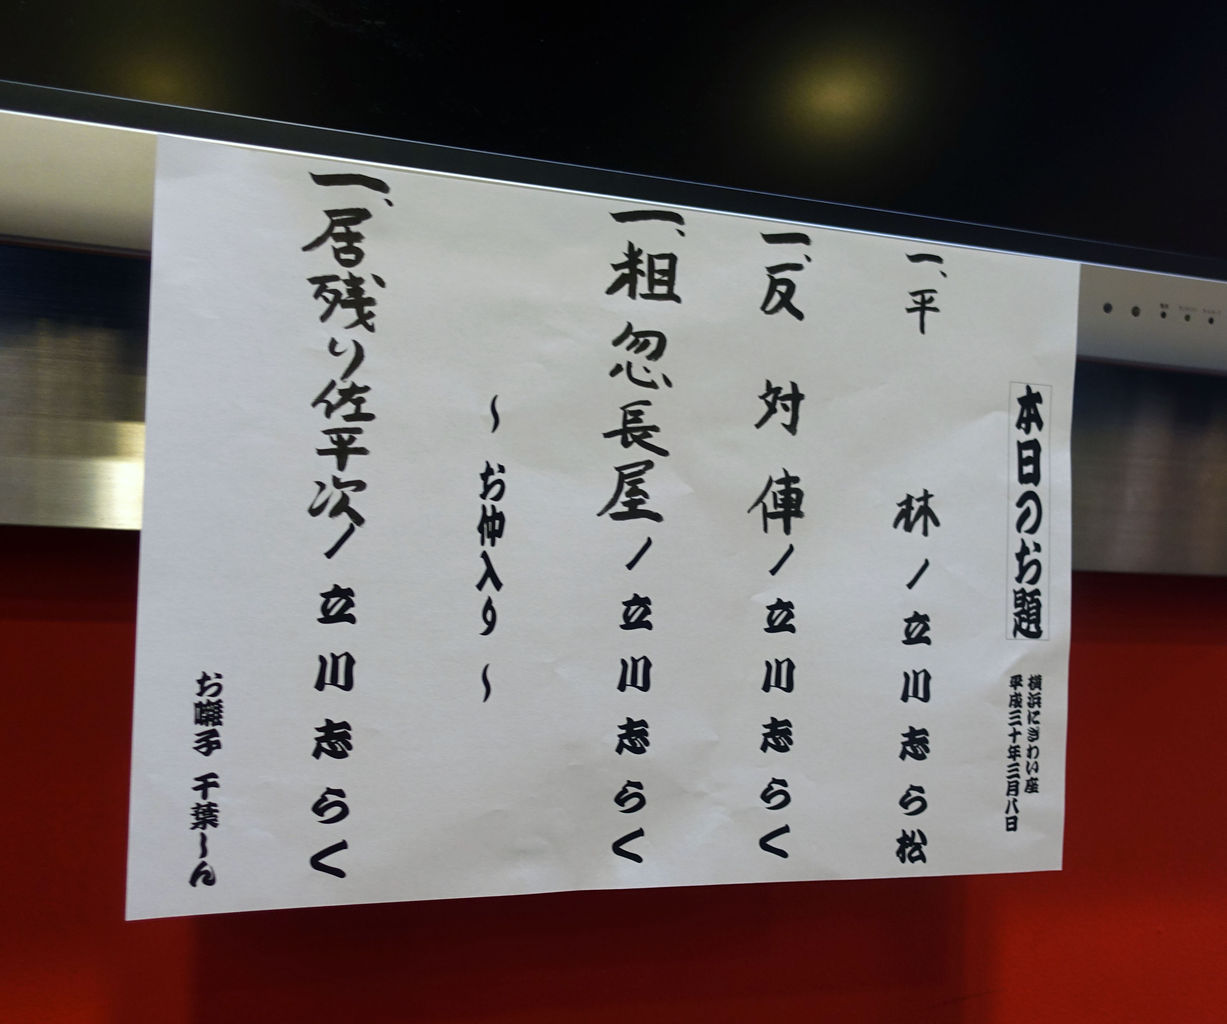 本日のお題
横浜にぎわい座
平成三十年三月八日
一、平林/立川志ら松
一、反対俥/立川志らく
一、粗忽長屋/立川志らく
～お仲入り～
一、居残り佐平次/立川志らく
お囃子 千葉しん